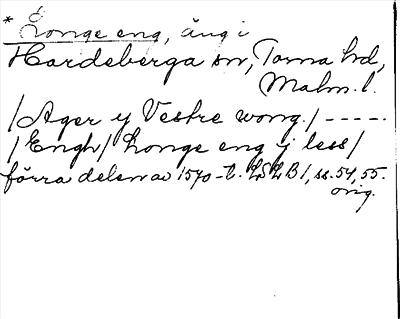 * Longe eng, äng i
Hardeberga sn, Torna hd,
Malm. l.
/Ager y Vestre wong./ -----
/Engh/ Longe eng j less/
förra delen av 1540-t. LSLB 1, ss. 54, 55.
orig.